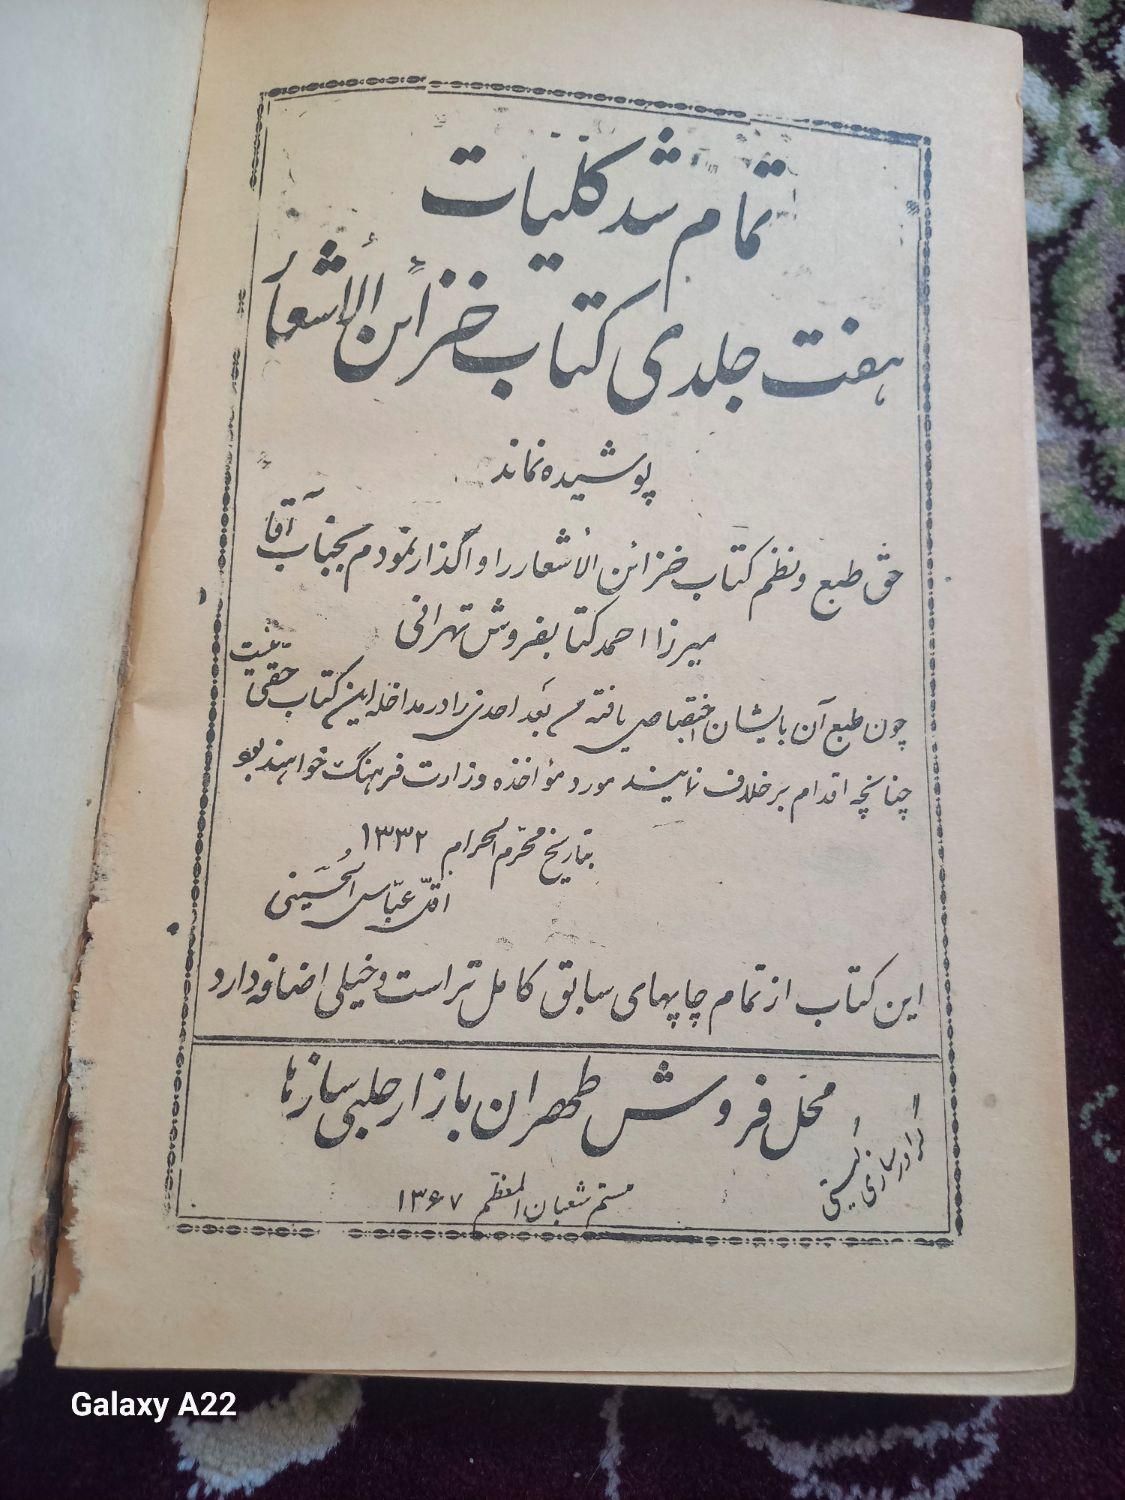 تمام شد کلیات
هفت جلدی کتاب خزائن الأشعار
پوشیده نماند
حق طبع و نظم کتاب خزائن الأشعار را واگذار نمودم بجناب آقا
میرزا احمد کتابفروش تهرانی
چون طبع آن بایشان اختصاص یافته من بعد احدی را در مداخله این کتاب حقی نیست
چنانچه اقدام بر خلاف نمایند مورد مؤاخذه وزارت فرهنگ خواهند بود
بتاریخ محرم الحرام ۱۳۳۲
اقل عباس الحسینی
این کتاب از تمام چاپهای سابق کامل تر است و خیلی اضافه دارد
محل فروش طهران بازار حلبی سازها
شعبان المعظم ۱۳۶۷
Galaxy A22